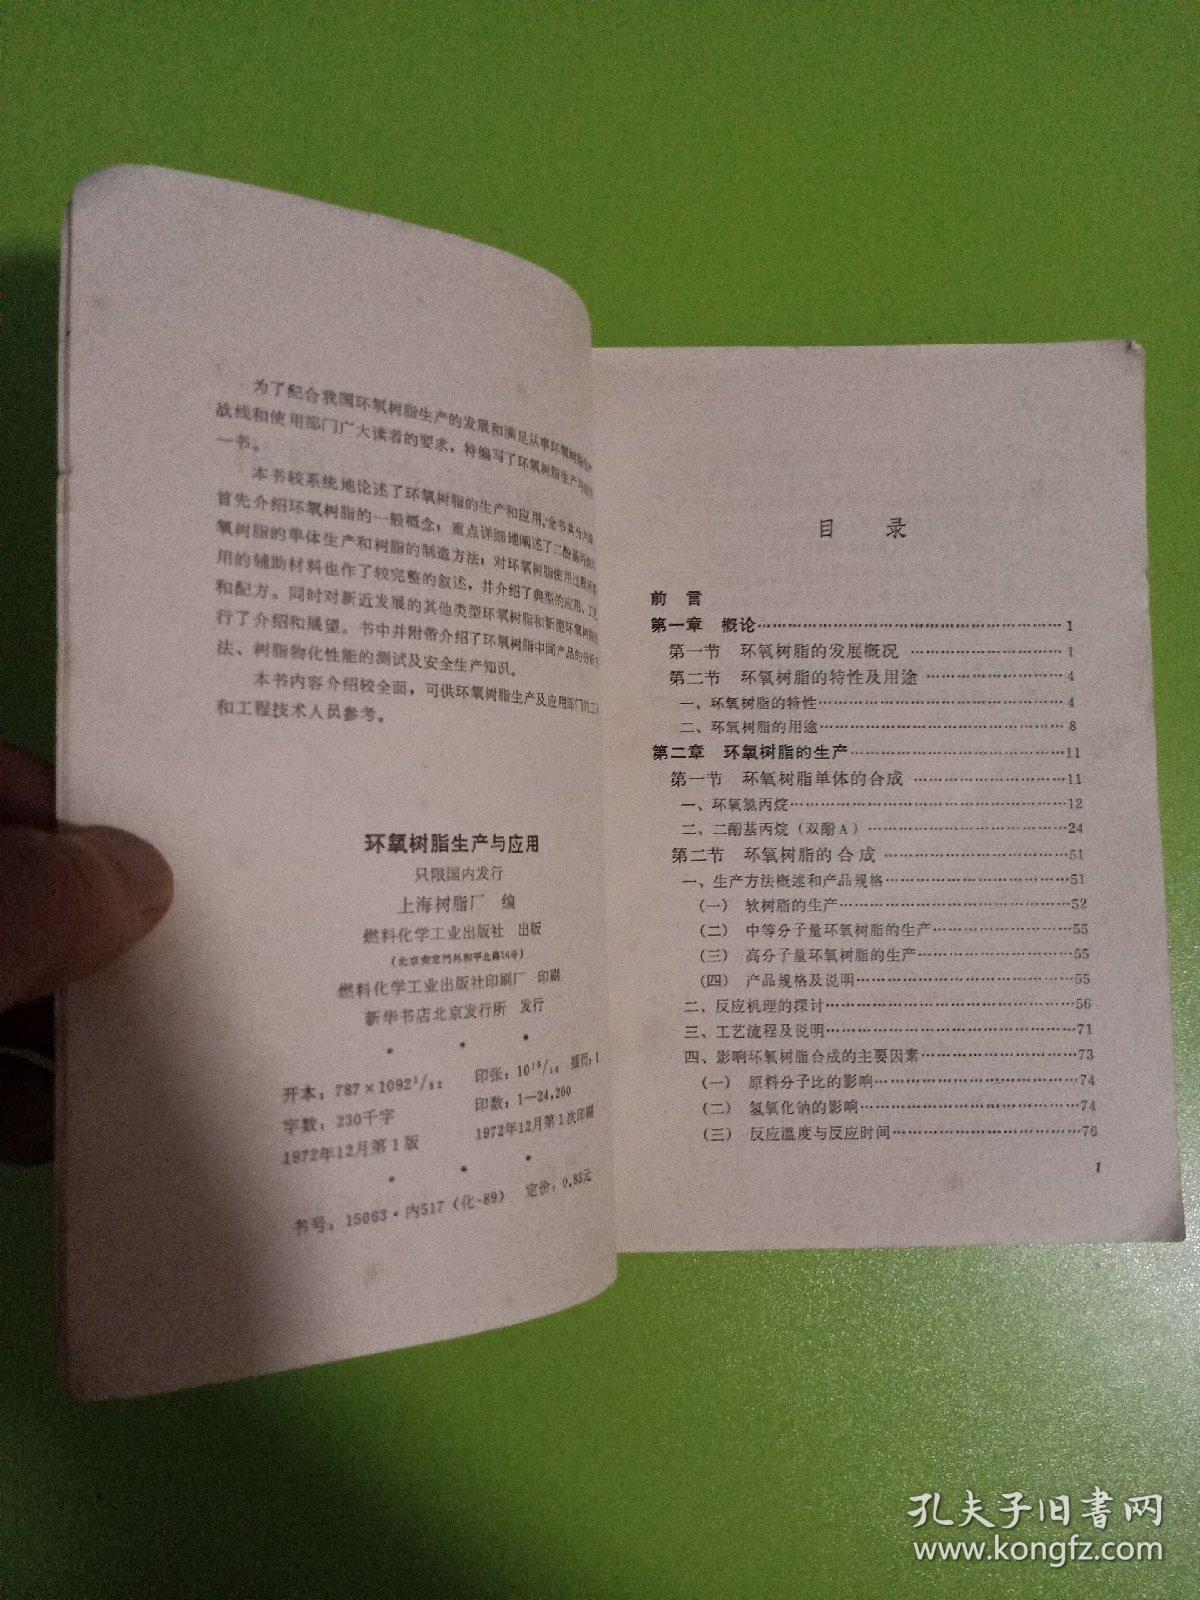 为了配合我国环氧树脂生产的发展和满足从事环氧树脂生产
战线和使用部门广大读者的要求，特编写了环氧树脂生产与应用
一书。
本书较系统地论述了环氧树脂的生产和应用。全书共分六章，
首先介绍环氧树脂的一般概念；重点详细地阐述了二酚基丙烷环
氧树脂的单体生产和树脂的制造方法；对环氧树脂使用过程
用的辅助材料也作了较完整的叙述，并介绍了典型的应用、工艺
和配方。同时对新近发展的其他类型环氧树脂和新型环氧树脂
行了介绍和展望。书中并附带介绍了环氧树脂中间产品的分析
法、树脂物化性能的测试及安全生产知识。
本书内容介绍较全面，可供环氧树脂生产及应用部门的工人
和工程技术人员参考。
环氧树脂生产与应用
只限国内发行
上海树脂厂 编
燃料化学工业出版社 出版
（北京安定门外和平北路16号）
燃料化学工业出版社印刷厂 印刷
新华书店北京发行所 发行
* * *
开本：787×1092¹/₃₂ 印张：10¹⁵/₁₆ 插页：1
字数：230千字 印数：1—24,200
1972年12月第1版 1972年12月第1次印刷
* * *
书号：15063·内517（化-89） 定价：0.83元
目 录
前 言
第一章 概论……1
第一节 环氧树脂的发展概况……1
第二节 环氧树脂的特性及用途……4
一、环氧树脂的特性……4
二、环氧树脂的用途……8
第二章 环氧树脂的生产……11
第一节 环氧树脂单体的合成……11
一、环氧氯丙烷……12
二、二酚基丙烷（双酚A）……24
第二节 环氧树脂的合成……51
一、生产方法概述和产品规格……51
（一） 软树脂的生产……52
（二） 中等分子量环氧树脂的生产……55
（三） 高分子量环氧树脂的生产……55
（四） 产品规格及说明……55
二、反应机理的探讨……56
三、工艺流程及说明……71
四、影响环氧树脂合成的主要因素……73
（一） 原料分子比的影响……74
（二） 氢氧化钠的影响……74
（三） 反应温度与反应时间……76
1
孔夫子旧书网
www.kongfz.com